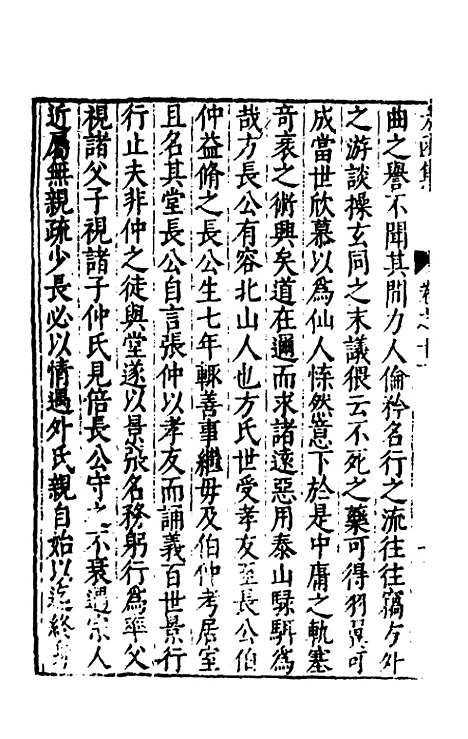 太函集 卷之七十
曲之譽不聞其閒力人倫矜名行之流往往竊方外
之游談操玄同之末議猥云不死之藥可得羽翼可
成當世欣慕以為仙人悚然意下於是中庸之軌塞
奇袤之術興矣道在邇而求諸遠惡用泰山騄駬為
哉方長公有容北山人也方氏世受孝友至長公伯
仲益脩之長公生七年輒善事繼母及伯仲考居室
且名其堂長公自言張仲以孝友而誦義百世景行
行止夫非仲之徒與堂遂以景張名務躬行為率父
視諸父子視諸子仲氏見倍長公守之不衰遇宗人
近屬無親疏少長必以情遇外氏親自始以迄終身